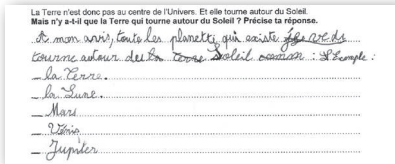 La Terre n'est donc pas au centre de l'Univers. Et elle tourne autour du Soleil.
Mais n'y a-t-il que la Terre qui tourne autour du Soleil ? Précise ta réponse.
A mon avis, toute les planette qui existe
tourne autour de la terre Soleil comme : Exemple :
_ la Terre.
_ la Lune.
_ Mars
_ Vénis
_ Jupiter